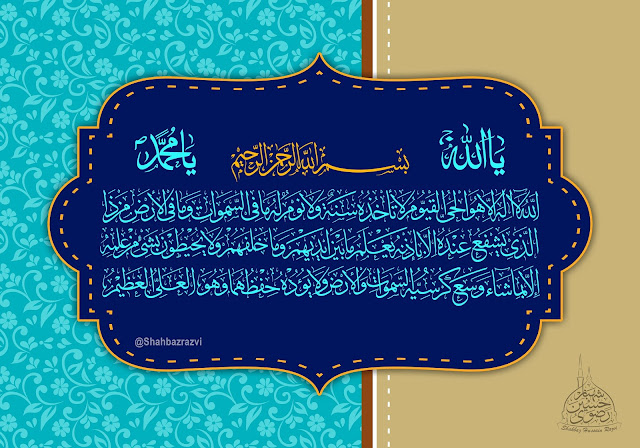 یا اللہ
بسم الله الرحمن الرحيم
یا محمد
الله لا اله الا هو الحي القيوم لا تأخذه سنة ولا نوم له ما في السموات وما في الارض من ذا
الذي يشفع عنده الا باذنه يعلم ما بين ايديهم وما خلفهم ولا يحيطون بشيء من علمه
الا بما شاء وسع كرسيه السموات والارض ولا يوده حفظهما وهو العلي العظيم
@Shahbazrazvi
شہباز حسین رضوی
Shahbaz Hussain Razvi